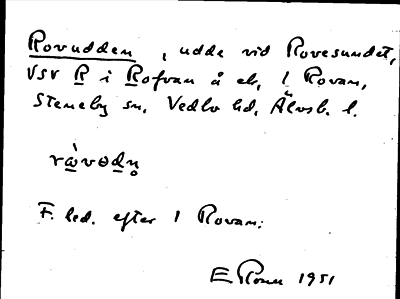 Rovudden, udde vid Rovesundet,
VSV R i Rofvan å ek, 1 Rovan,
Steneby sn, Vedbo hd, Älvsb. l.
F. led. efter 1 Rovan.
1951